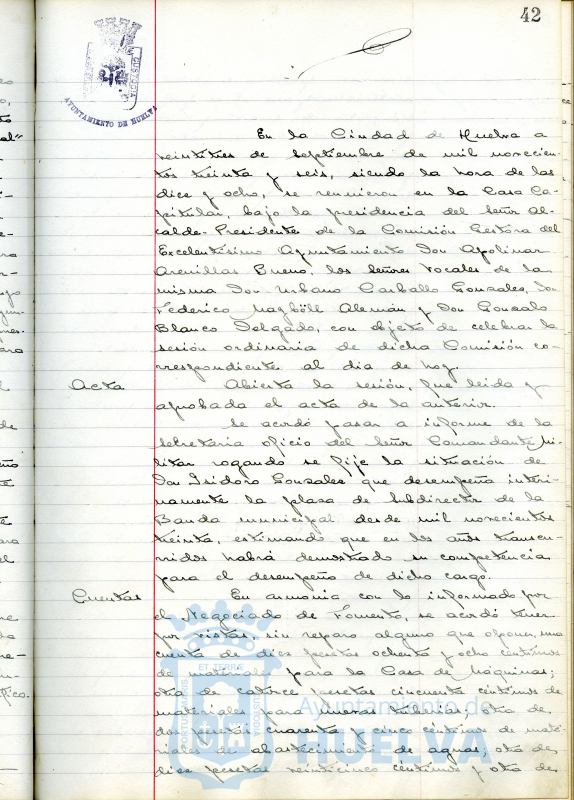 42
AYUNTAMIENTO DE HUELVA
En la Ciudad de Huelva a
veintitres de septiembre de mil novecien-
tos treinta y seis, siendo la hora de las
diez y ocho, se reunieron en la Casa Ca-
pitular, bajo la presidencia del Señor Al-
calde-Presidente de la Comisión Gestora del
Excelentísimo Ayuntamiento Don Apolinar
Arenillas Bueno, los señores Vocales de la
misma Don Urbano Carballo Gonzalez, Don
Federico Mayböll Alemán y Don Gonzalo
Blanco Delgado, con objeto de celebrar la
sesión ordinaria de dicha Comisión co-
rrespondiente al dia de hoy.
Acta Abierta la sesión, fue leida y
aprobada el acta de la anterior.
Se acordó pasar a informe de la
secretaria oficio del Señor Comandante Mi-
litar rogando se fije la situación de
Don Isidoro Gonzalez que desempeña interi-
namente la plaza de Subdirector de la
Banda municipal desde mil novecientos
treinta, estimando que en los años transcu-
rridos habrá demostrado su competencia
para el desempeño de dicho cargo.
Cuentas En armonia con lo informado por
el Negociado de Fomento, se acordó tener
por vistas, sin reparo alguno que oponer, una
cuenta de diez pesetas ochenta y ocho centimos
de materiales para la Casa de Máquinas;
otra de catorce pesetas cincuenta centimos de
materiales para nuevas tuberias; otra de
dos pesetas cuarenta y cinco centimos de mate-
riales de abastecimiento de aguas; otra de
diez pesetas veinticinco centimos y otra de
ET TERRAE
PORTUS MARIS
CUSTODIA
Ayuntamiento de
HUELVA